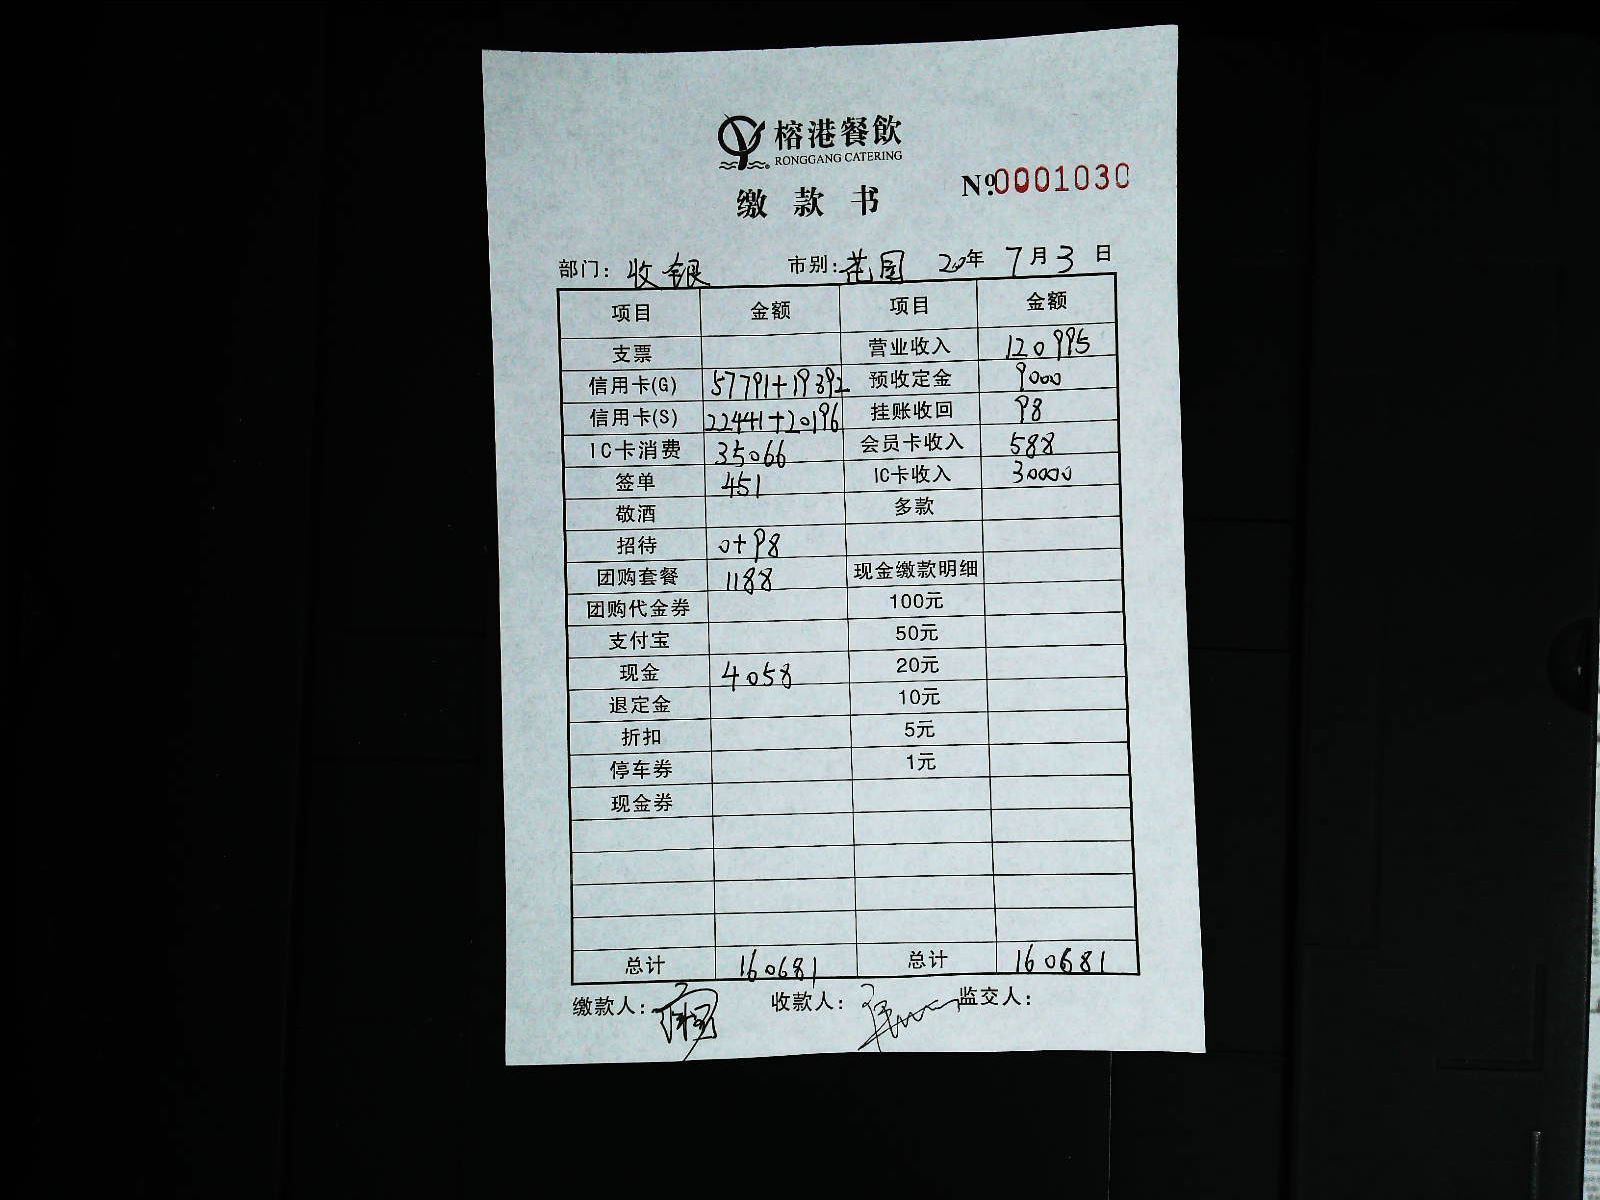 榕港餐飲
RONGGANG CATERING
缴款书
№0001030
部门：收银 市别：花园 20年 7月3日
项目 金额 项目 金额
支票 营业收入 120995
信用卡(G) 57791+19392 预收定金 9000
信用卡(S) 22441+20196 挂账收回 98
IC卡消费 35066 会员卡收入 588
签单 451 IC卡收入 30000
敬酒 多款
招待 0+98
团购套餐 1188 现金缴款明细
团购代金券 100元
支付宝 50元
现金 4058 20元
退定金 10元
折扣 5元
停车券 1元
现金券
总计 160681 总计 160681
缴款人： 收款人： 监交人：